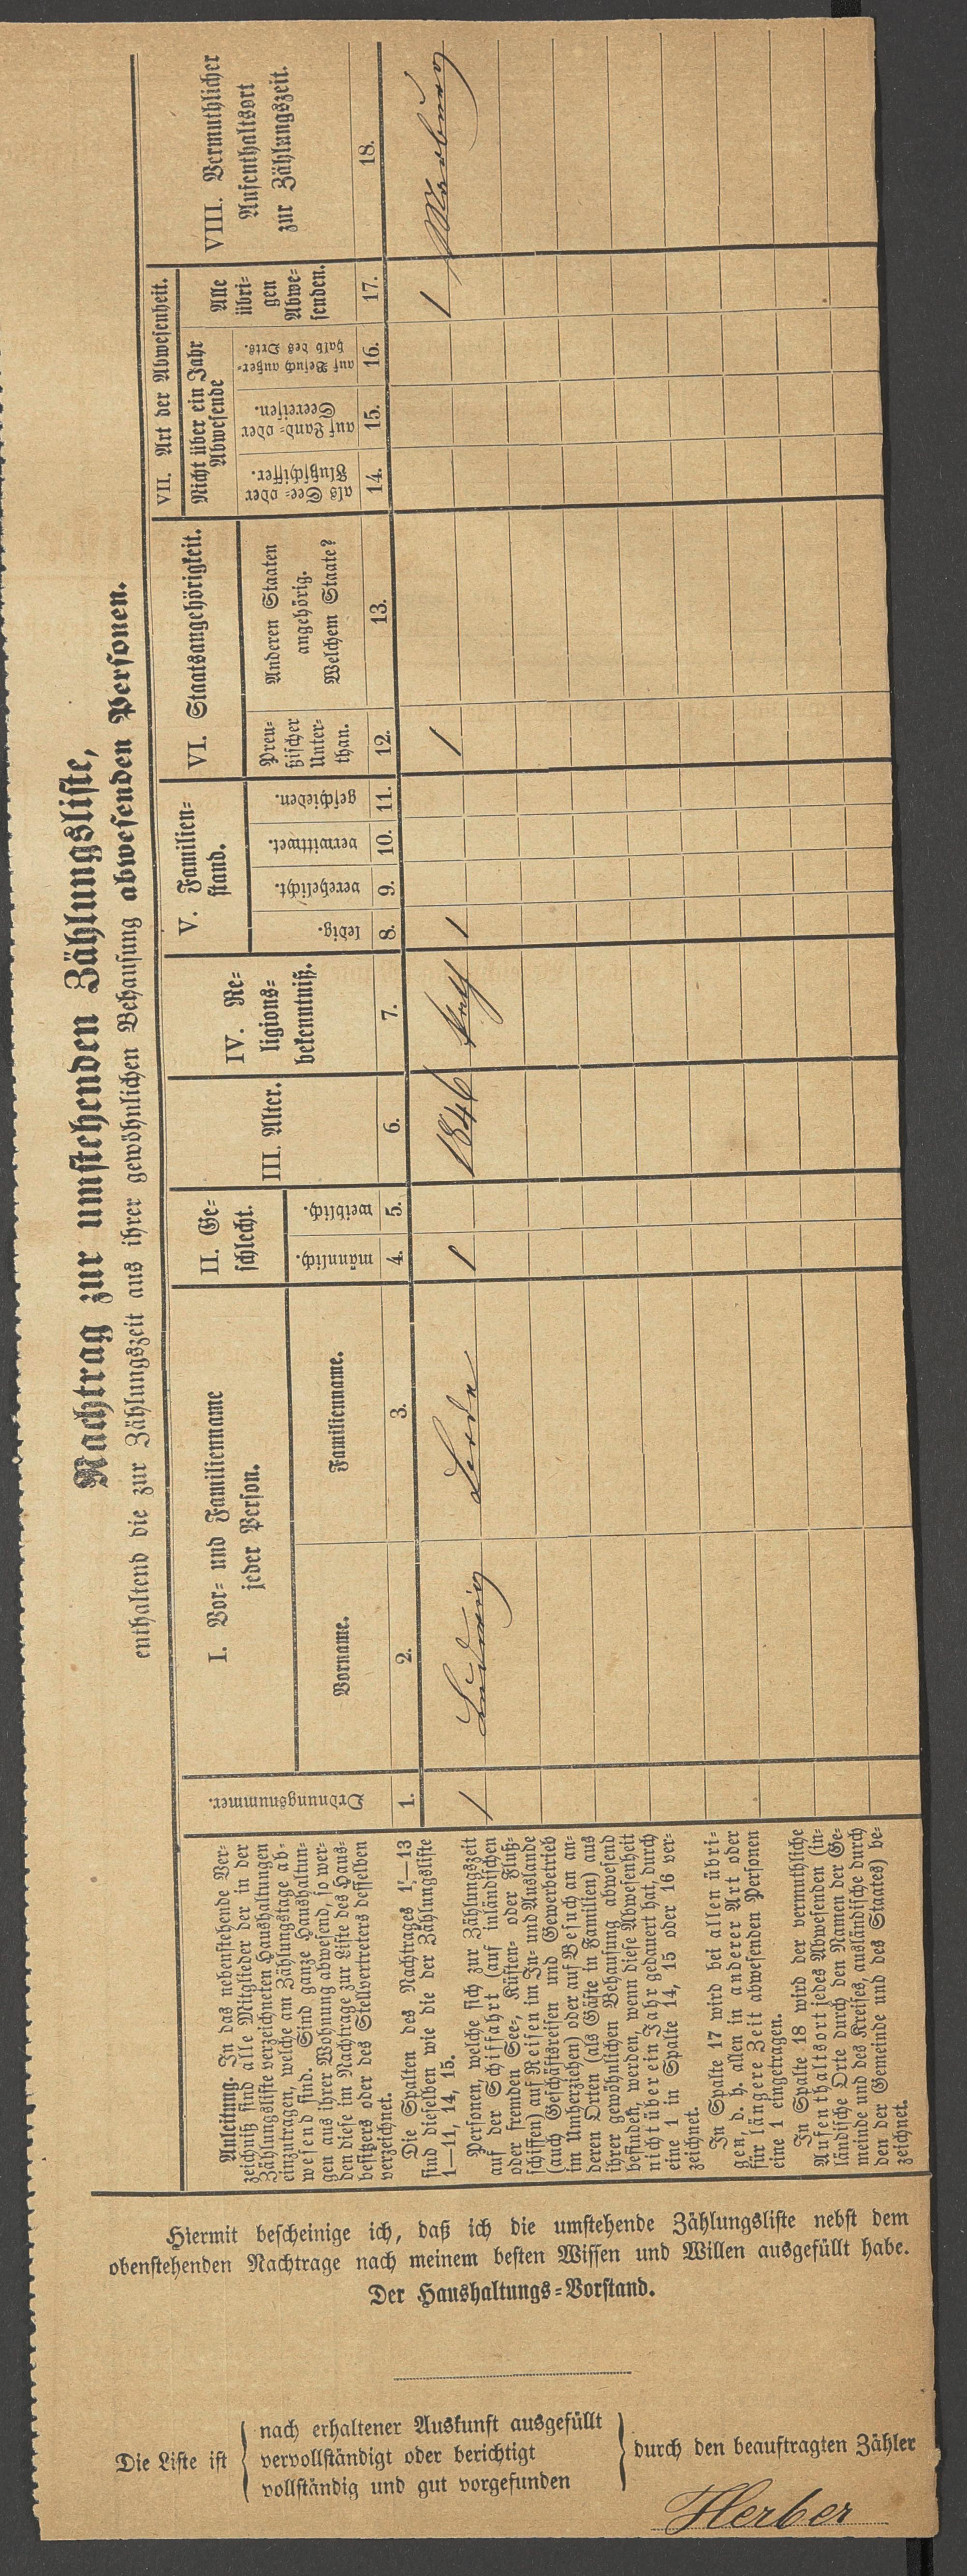 Nachtrag zur umstehenden Zählungsliste,
enthaltend die zur Zählungszeit aus ihrer gewöhnlichen Behausung abwesenden Personen.
Anleitung. In das nebenstehende Ver-
zeichniß sind alle Mitglieder der in der
Zählungsliste verzeichneten Haushaltungen
einzutragen, welche am Zählungstage ab-
wesend sind. Sind ganze Haushaltun-
gen aus ihrer Wohnung abwesend, so wer-
den diese im Nachtrage zur Liste des Haus-
besitzers oder des Stellvertreters desselben
verzeichnet.
Die Spalten des Nachtrages 1—13
sind dieselben wie die der Zählungsliste
1—11, 14, 15.
Personen, welche sich zur Zählungszeit
auf der Schiffahrt (auf inländischen
oder fremden See-, Küsten- oder Fluß-
schiffen) auf Reisen im In- und Auslande
(auch Geschäftsreisen und Gewerbetrieb
im Umherziehen) oder auf Besuch an an-
deren Orten (als Gäste in Familien) aus
ihrer gewöhnlichen Behausung abwesend
befinden, werden, wenn diese Abwesenheit
nicht über ein Jahr gedauert hat, durch
eine 1 in Spalte 14, 15 oder 16 ver-
zeichnet.
In Spalte 17 wird bei allen übri-
gen, d. h. allen in anderer Art oder
für längere Zeit abwesenden Personen
eine 1 eingetragen.
In Spalte 18 wird der vermuthliche
Aufenthaltsort jedes Abwesenden (in-
ländische Orte durch den Namen der Ge-
meinde und des Kreises, ausländische durch
den der Gemeinde und des Staates) be-
zeichnet.
Ordnungsnummer.
I. Vor- und Familienname
jeder Person.
Vorname.
Familienname.
II. Ge-
schlecht.
männlich.
weiblich.
III. Alter.
IV. Re-
ligions-
bekenntniß.
V. Familien-
stand.
ledig.
verehelicht.
verwittwet.
geschieden.
VI. Staatsangehörigkeit.
Preu-
ßischer
Unter-
than.
Anderen Staaten
angehörig.
Welchem Staate?
VII. Art der Abwesenheit.
Nicht über ein Jahr
Abwesende
als See- oder
Flußschiffer.
auf Land- oder
Seereisen.
auf Besuch außer-
halb des Orts.
Alle
übri-
gen
Abwe-
senden.
VIII. Vermuthlicher
Aufenthaltsort
zur Zählungszeit.
1. 2. 3. 4. 5. 6. 7. 8. 9. 10. 11. 12. 13. 14. 15. 16. 17. 18.
1 Ludwig 1 1846 Kath 1 1 1 Marburg
Hiermit bescheinige ich, daß ich die umstehende Zählungsliste nebst dem
obenstehenden Nachtrage nach meinem besten Wissen und Willen ausgefüllt habe.
Der Haushaltungs-Vorstand.
Die Liste ist
nach erhaltener Auskunft ausgefüllt
vervollständigt oder berichtigt
vollständig und gut vorgefunden
durch den beauftragten Zähler
Herber